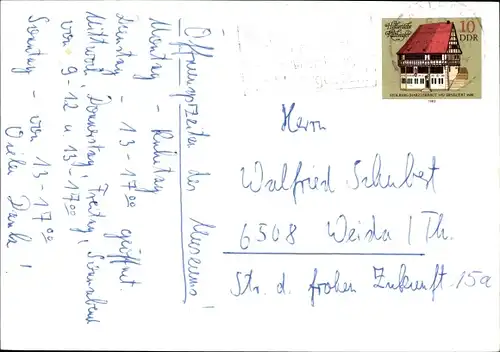 Öffnungszeiten des Museums!
Montag - Ruhetag
Dienstag - 13-17.00 geöffnet.
Mittwoch, Donnerstag, Freitag, Sonnabend
von 9-12 u 13-17.00
Sonntag - von 13-17.00
Vielen Dank!
10
DDR
Historische
1983
Herrn
Walfried Schubert
6508 Weida / Th.
Str. d. frohen Zukunft 15a